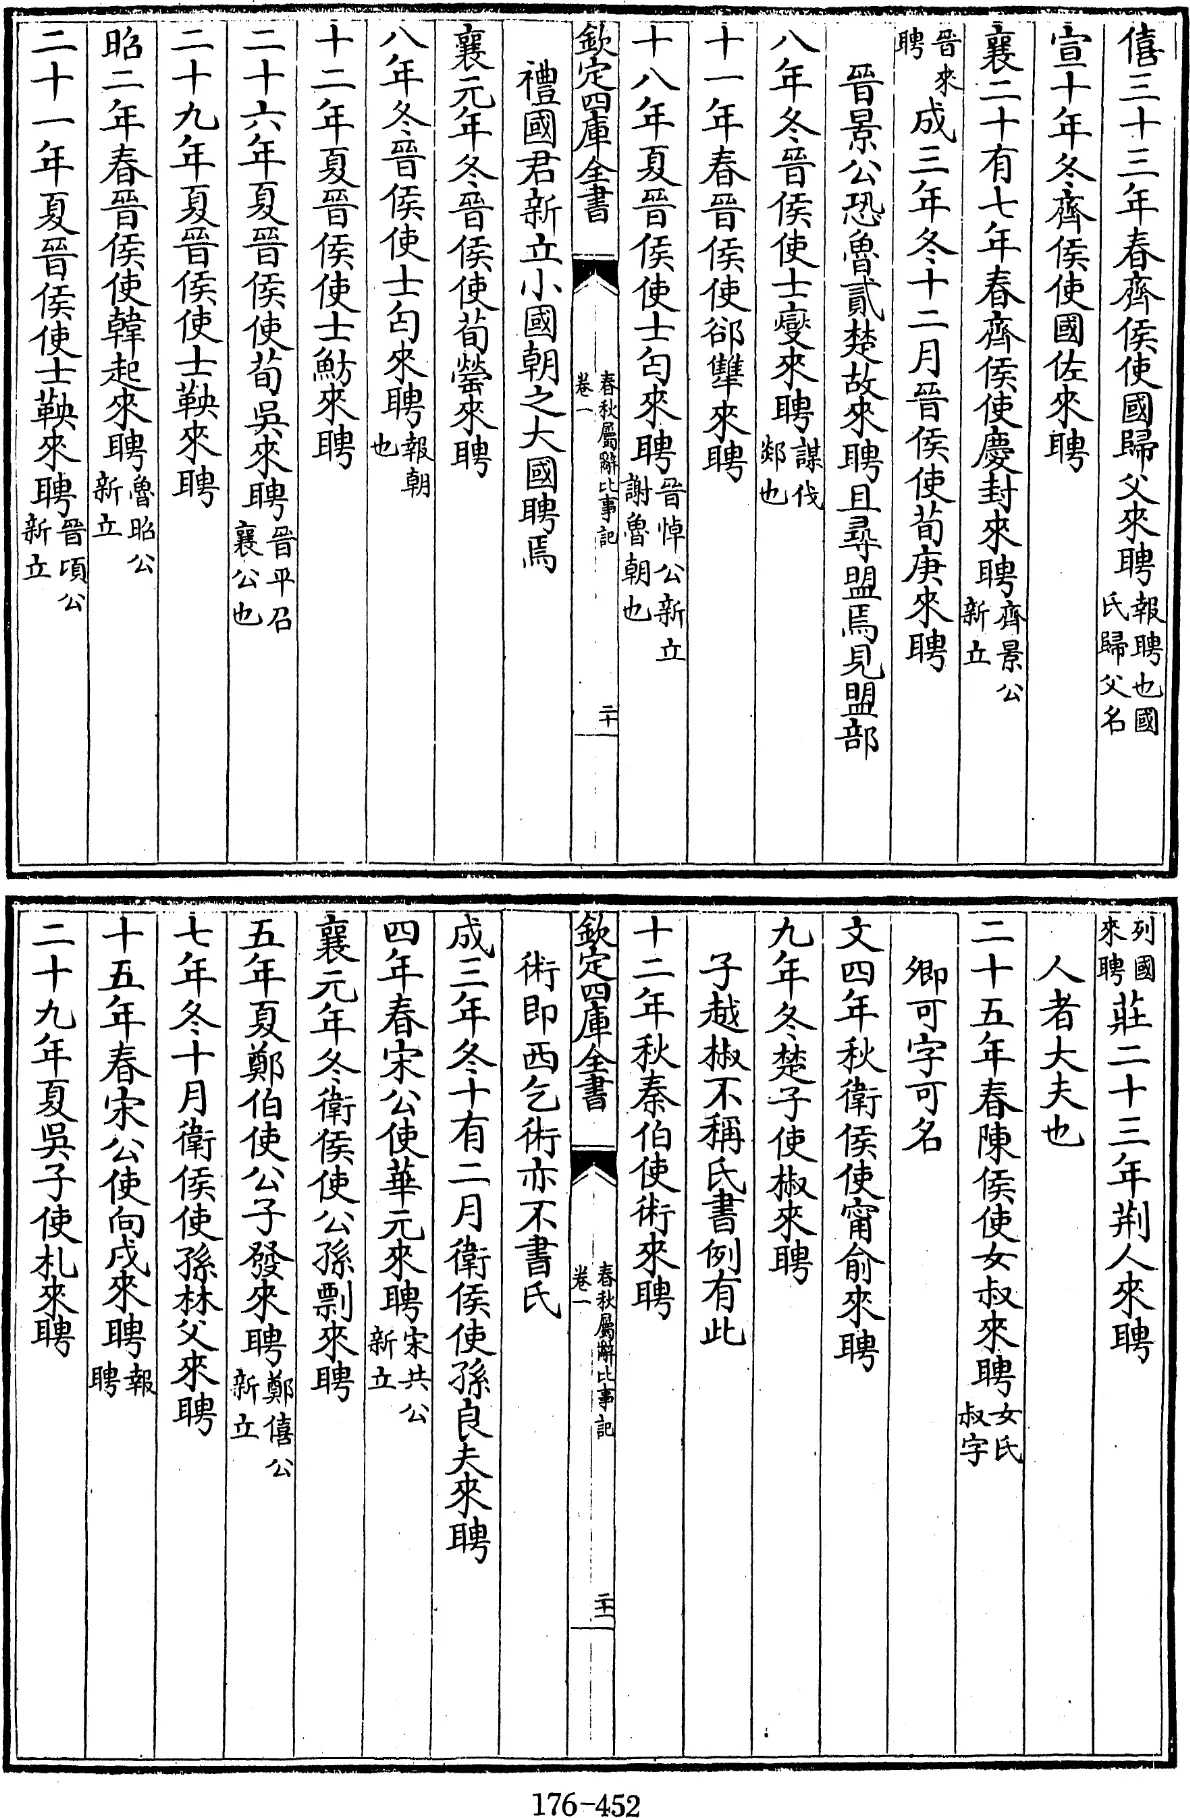 僖三十三年春齊侯使國歸父來聘報聘也國氏歸父名
宣十年冬齊侯使國佐來聘
襄二十有七年春齊侯使慶封來聘齊景公新立
晉來聘成三年冬十二月晉侯使荀庚來聘
晉景公恐魯貳楚故來聘且尋盟焉見盟部
八年冬晉侯使士燮來聘謀伐郯也
十一年春晉侯使郤犨來聘
十八年夏晉侯使士匄來聘晉悼公新立謝魯朝也
欽定四庫全書
春秋屬辭比事記
卷一
二十
禮國君新立小國朝之大國聘焉
襄元年冬晉侯使荀罃來聘
八年冬晉侯使士匄來聘報朝也
十二年夏晉侯使士魴來聘
二十六年夏晉侯使荀吳來聘晉平召襄公也
二十九年夏晉侯使士鞅來聘
昭二年春晉侯使韓起來聘魯昭公新立
二十一年夏晉侯使士鞅來聘晉頃公新立
列國來聘莊二十三年荆人來聘
人者大夫也
二十五年春陳侯使女叔來聘女氏叔字
卿可字可名
文四年秋衛侯使甯俞來聘
九年冬楚子使椒來聘
子越椒不稱氏書例有此
十二年秋秦伯使術來聘
欽定四庫全書
春秋屬辭比事記
卷一
二十一
術即西乞術亦不書氏
成三年冬十有二月衛侯使孫良夫來聘
四年春宋公使華元來聘宋共公新立
襄元年冬衛侯使公孫剽來聘
五年夏鄭伯使公子發來聘鄭僖公新立
七年冬十月衛侯使孫林父來聘
十五年春宋公使向戌來聘報聘
二十九年夏吳子使札來聘
176-452